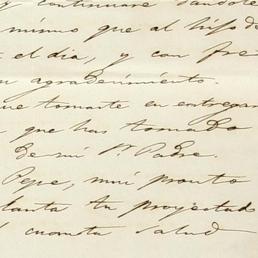 y continuaré dándote
mismo que al hijo de
el dia, y con fre
agradecimiento.
que tomarte en entregar
que has tomado
de mi Sr. Padre.
Pepe, mui pronto
tu proyectado
salud